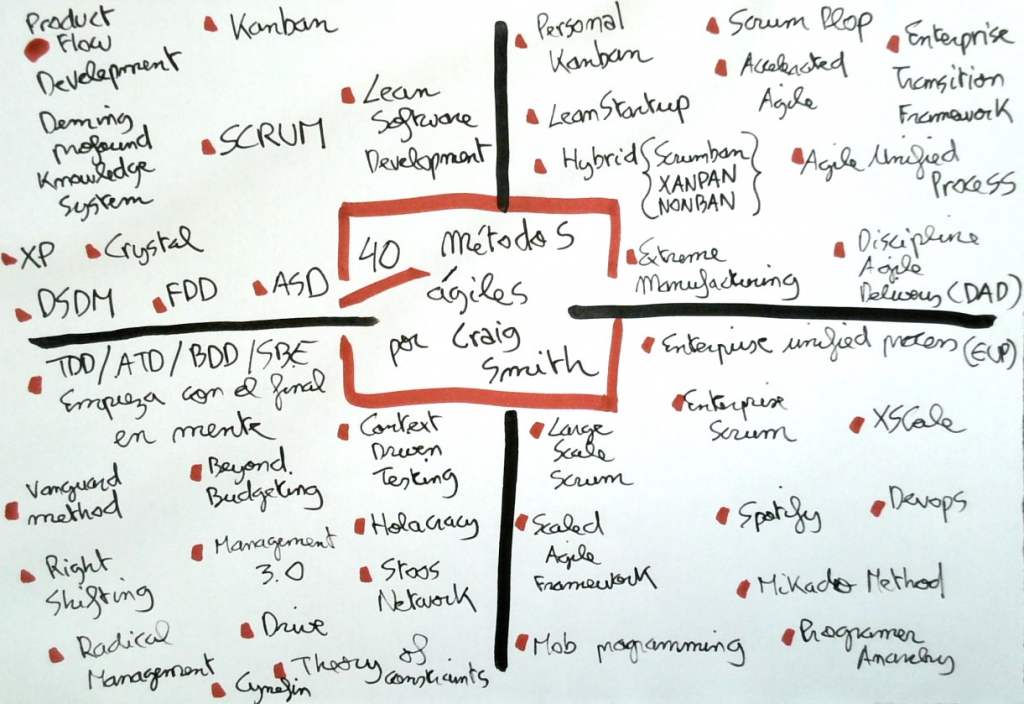 Product
Flow
Development
Deming
Profound
Knowledge
System
Kanban
SCRUM
Lean
Software
Development
XP
Crystal
DSDM
FDD
ASD
Personal
Kanban
Lean Startup
Hybrid { Scrumban
XANPAN
NONBAN }
Extreme
Manufacturing
Scrum Plop
Accelerated
Agile
Enterprise
Transition
Framework
Agile Unified
Process
Discipline
Agile
Delivery (DAD)
40 Métodos
ágiles
por Craig
Smith
TDD/ATD/BDD/SBE
Empieza con el final
en mente
Vanguard
method
Beyond
Budgeting
Context
Driven
Testing
Right
Shifting
Management
3.0
Holacracy
Stoos
Network
Radical
Management
Drive
Cynefin
Theory of
constraints
Enterprise unified process (EUP)
Large
Scale
Scrum
Enterprise
Scrum
XSCale
Scaled
Agile
Framework
Spotify
Devops
Mikado Method
Mob programming
Programer
Anarchy